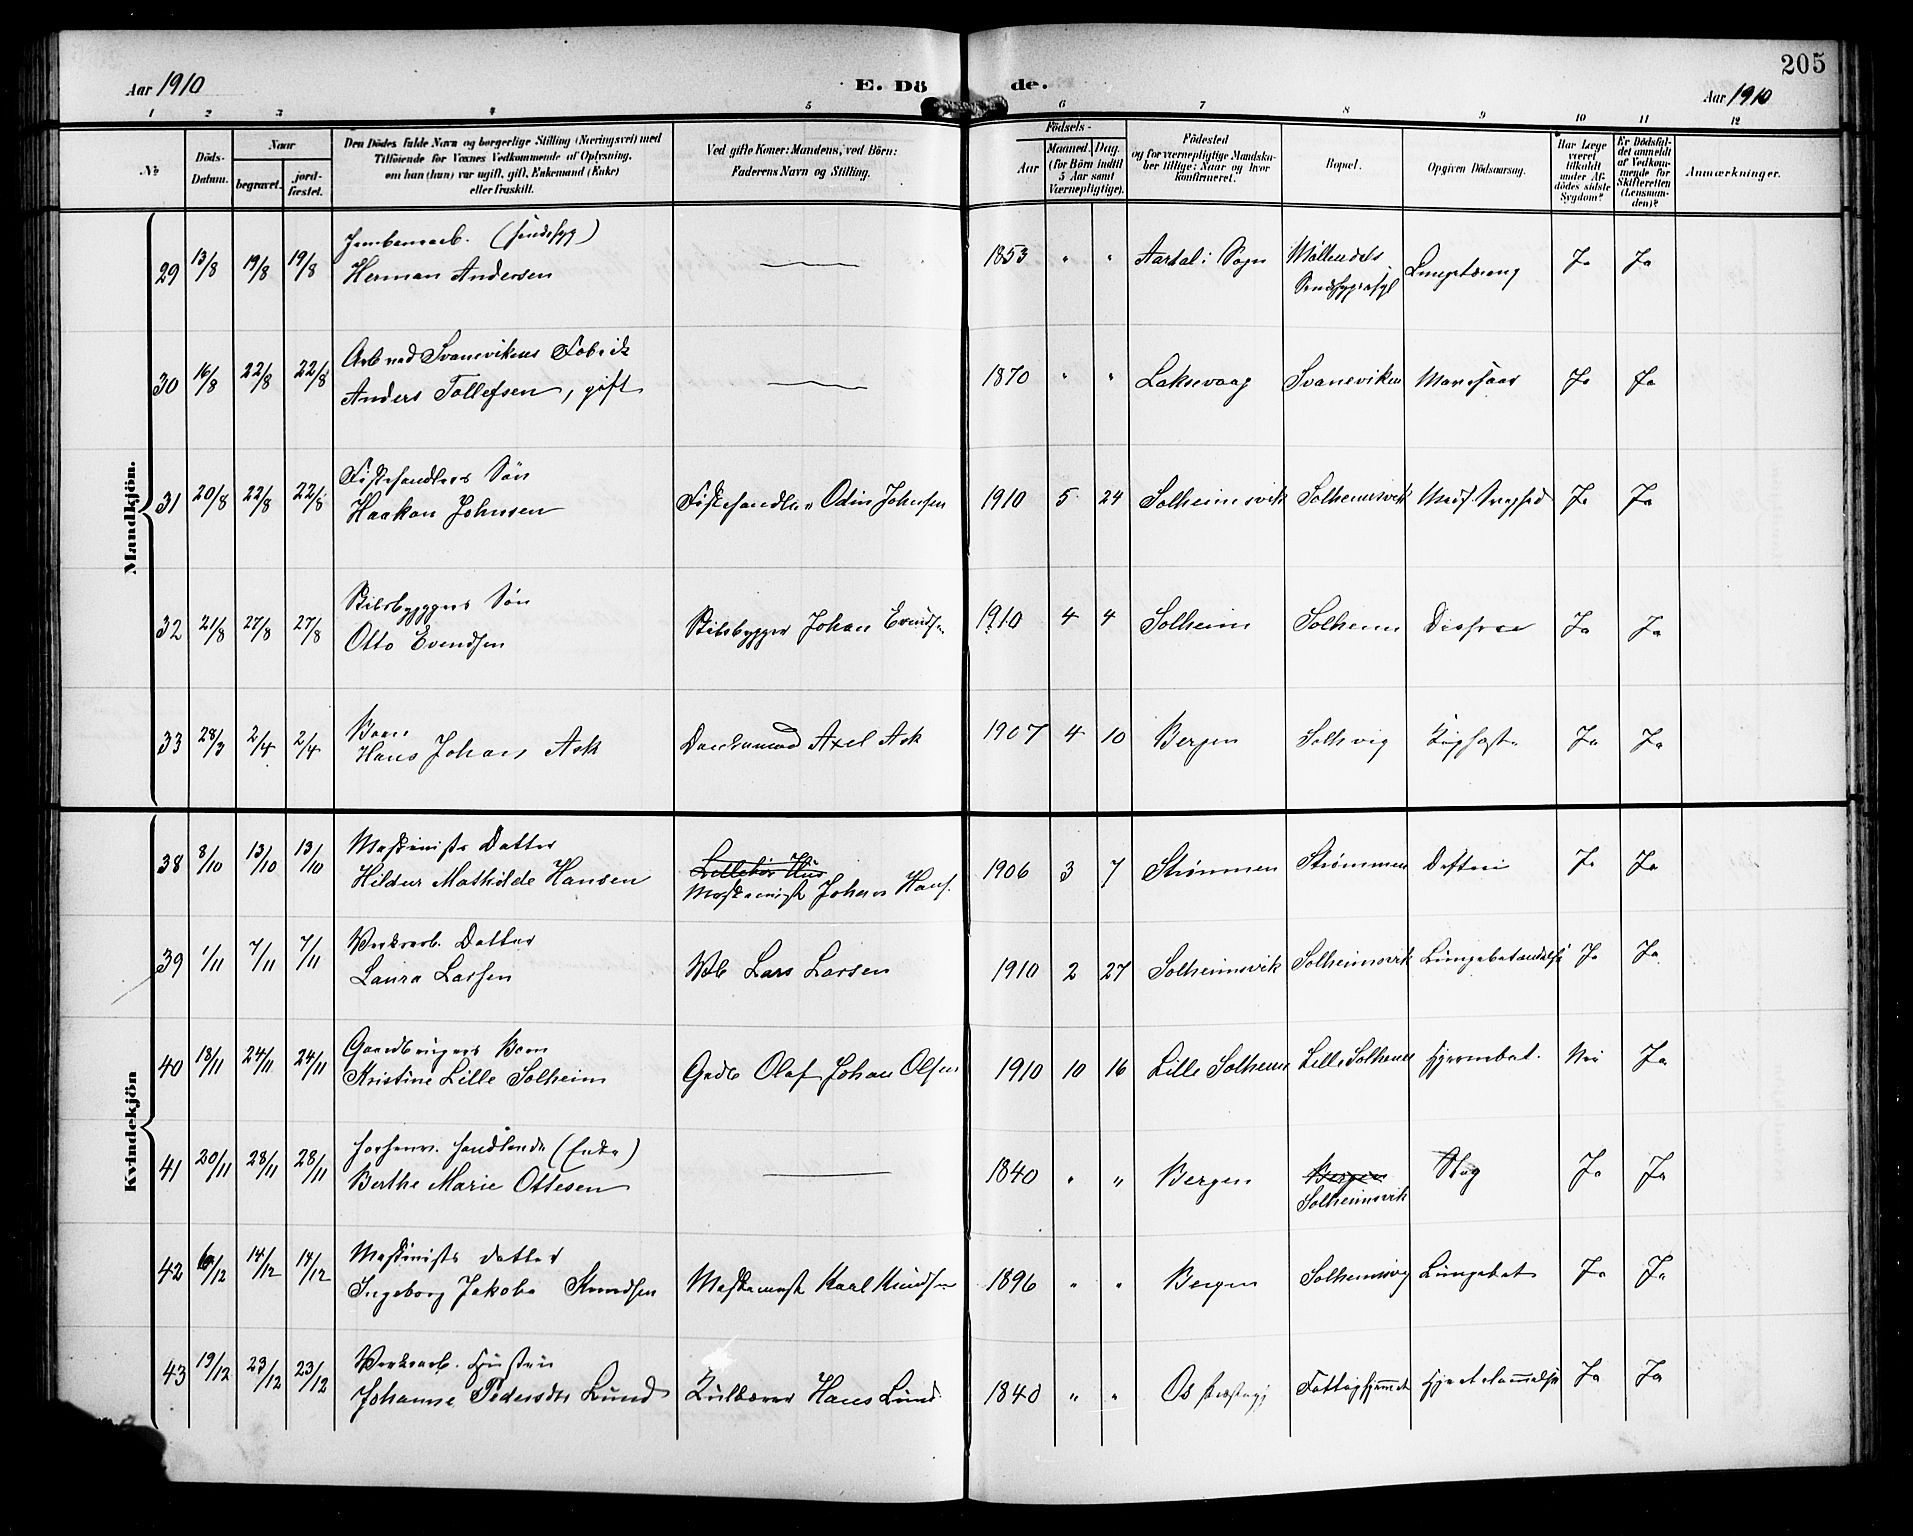 205
Aar 1910
E. Dö de.
Aar 1910
1 2 3 4 5 6 7 8 9 10 11 12
No
Döds-
Datum.
Naar
begravet.
jord-
fæstet.
Den Dödes fulde Navn og borgerlige Stilling (Næringsvei) med
Tilföiende for Voxnes Vedkommende af Oplysning,
om han (hun) var ugift, gift, Enkemand (Enke)
eller fraskilt.
Ved gifte Koner: Mandens, ved Börn:
Faderens Navn og Stilling.
Födsels-
Aar
Maaned. Dag.
(for Börn indtil
5 Aar samt
Værnepligtige).
Födested
og for værnepligtige Mandska-
ber tillige: Naar og hvor
konfirmeret.
Bopæl.
Opgiven Dödsaarsag.
Har Læge
været
tilkaldt
under Af-
dödes sidste
Sygdom?
Er Dödsfal-
det anmeldt
af Vedkom-
mende for
Skifteretten
(Lensman-
den)?
Anmærkninger.
Mandkjön.
29 13/8 19/8 19/8
Herman Andersen
1853 " " Aardal i Sogn Ja Ja
30 16/8 22/8 22/8 Arb ved Svanevikens Fabrik
Anders Tollefsen, gift
1870 " " Laksevaag Svaneviken Ja Ja
31 20/8 22/8 22/8 Fiskehandlers Sön
Haakon Johnsen
Fiskehandler Odin Johnsen 1910 5 24 Solheimsvik Solheimsvik Ja Ja
32 21/8 27/8 27/8 Skibsbyggers Sön
Otto Evendsen
Skibsbygger Johan Evendsen 1910 4 4 Solheim Solheim Ja Ja
33 28/3 2/4 2/4 Barn
Hans Johan Ask
Axel Ask 1907 4 10 Bergen Solhvig Ja Ja
Kvindekjön
38 8/10 13/10 13/10 Maskinists Datter
Hildur Mathilde Hansen
Maskinist Johan Hans. 1906 3 7 Strømmen Strømmen Difteri Ja Ja
39 1/11 7/11 7/11 Verksarb. Datter
Laura Larsen
Vb Lars Larsen 1910 2 27 Solheimsvik Solheimsvik Lungebetændelse Ja Ja
40 18/11 24/11 24/11 Gaardbrugers Barn
Kristine Lille Solheim
Grdb Olaf Johan Olsen 1910 10 16 Lille Solheim Lille Solheim Hjernebet. Nei Ja
41 20/11 28/11 28/11 forhenv. handlende (Enke)
Berthe Marie Ottesen
1840 " " Bergen Bergen
Solheimsvik
Slag Ja Ja
42 6/12 14/12 14/12 Maskinists datter
Ingeborg Jakoba Knudsen
Maskinist Karl Knudsen 1896 " " Bergen Solheimsvig Lungebet Ja Ja
43 19/12 23/12 23/12 Verksarb. Hustru
Johanne Pedersdtr Lund
Hans Lund 1840 " " Os Fattighjemmet Hjertelammelse Ja Ja